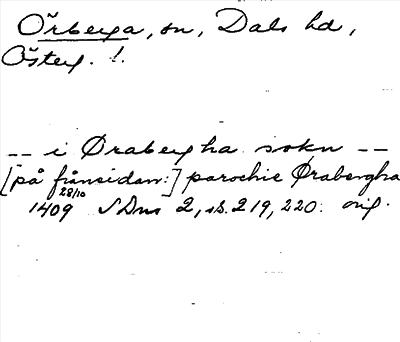 Örberga, sn, Dals hd,
Österg. !.
-- i Ørabergha sokn --
[på frånsidan:] parochie Ørabergha
1409 28/10 SDns 2, s. 219, 220. orig.